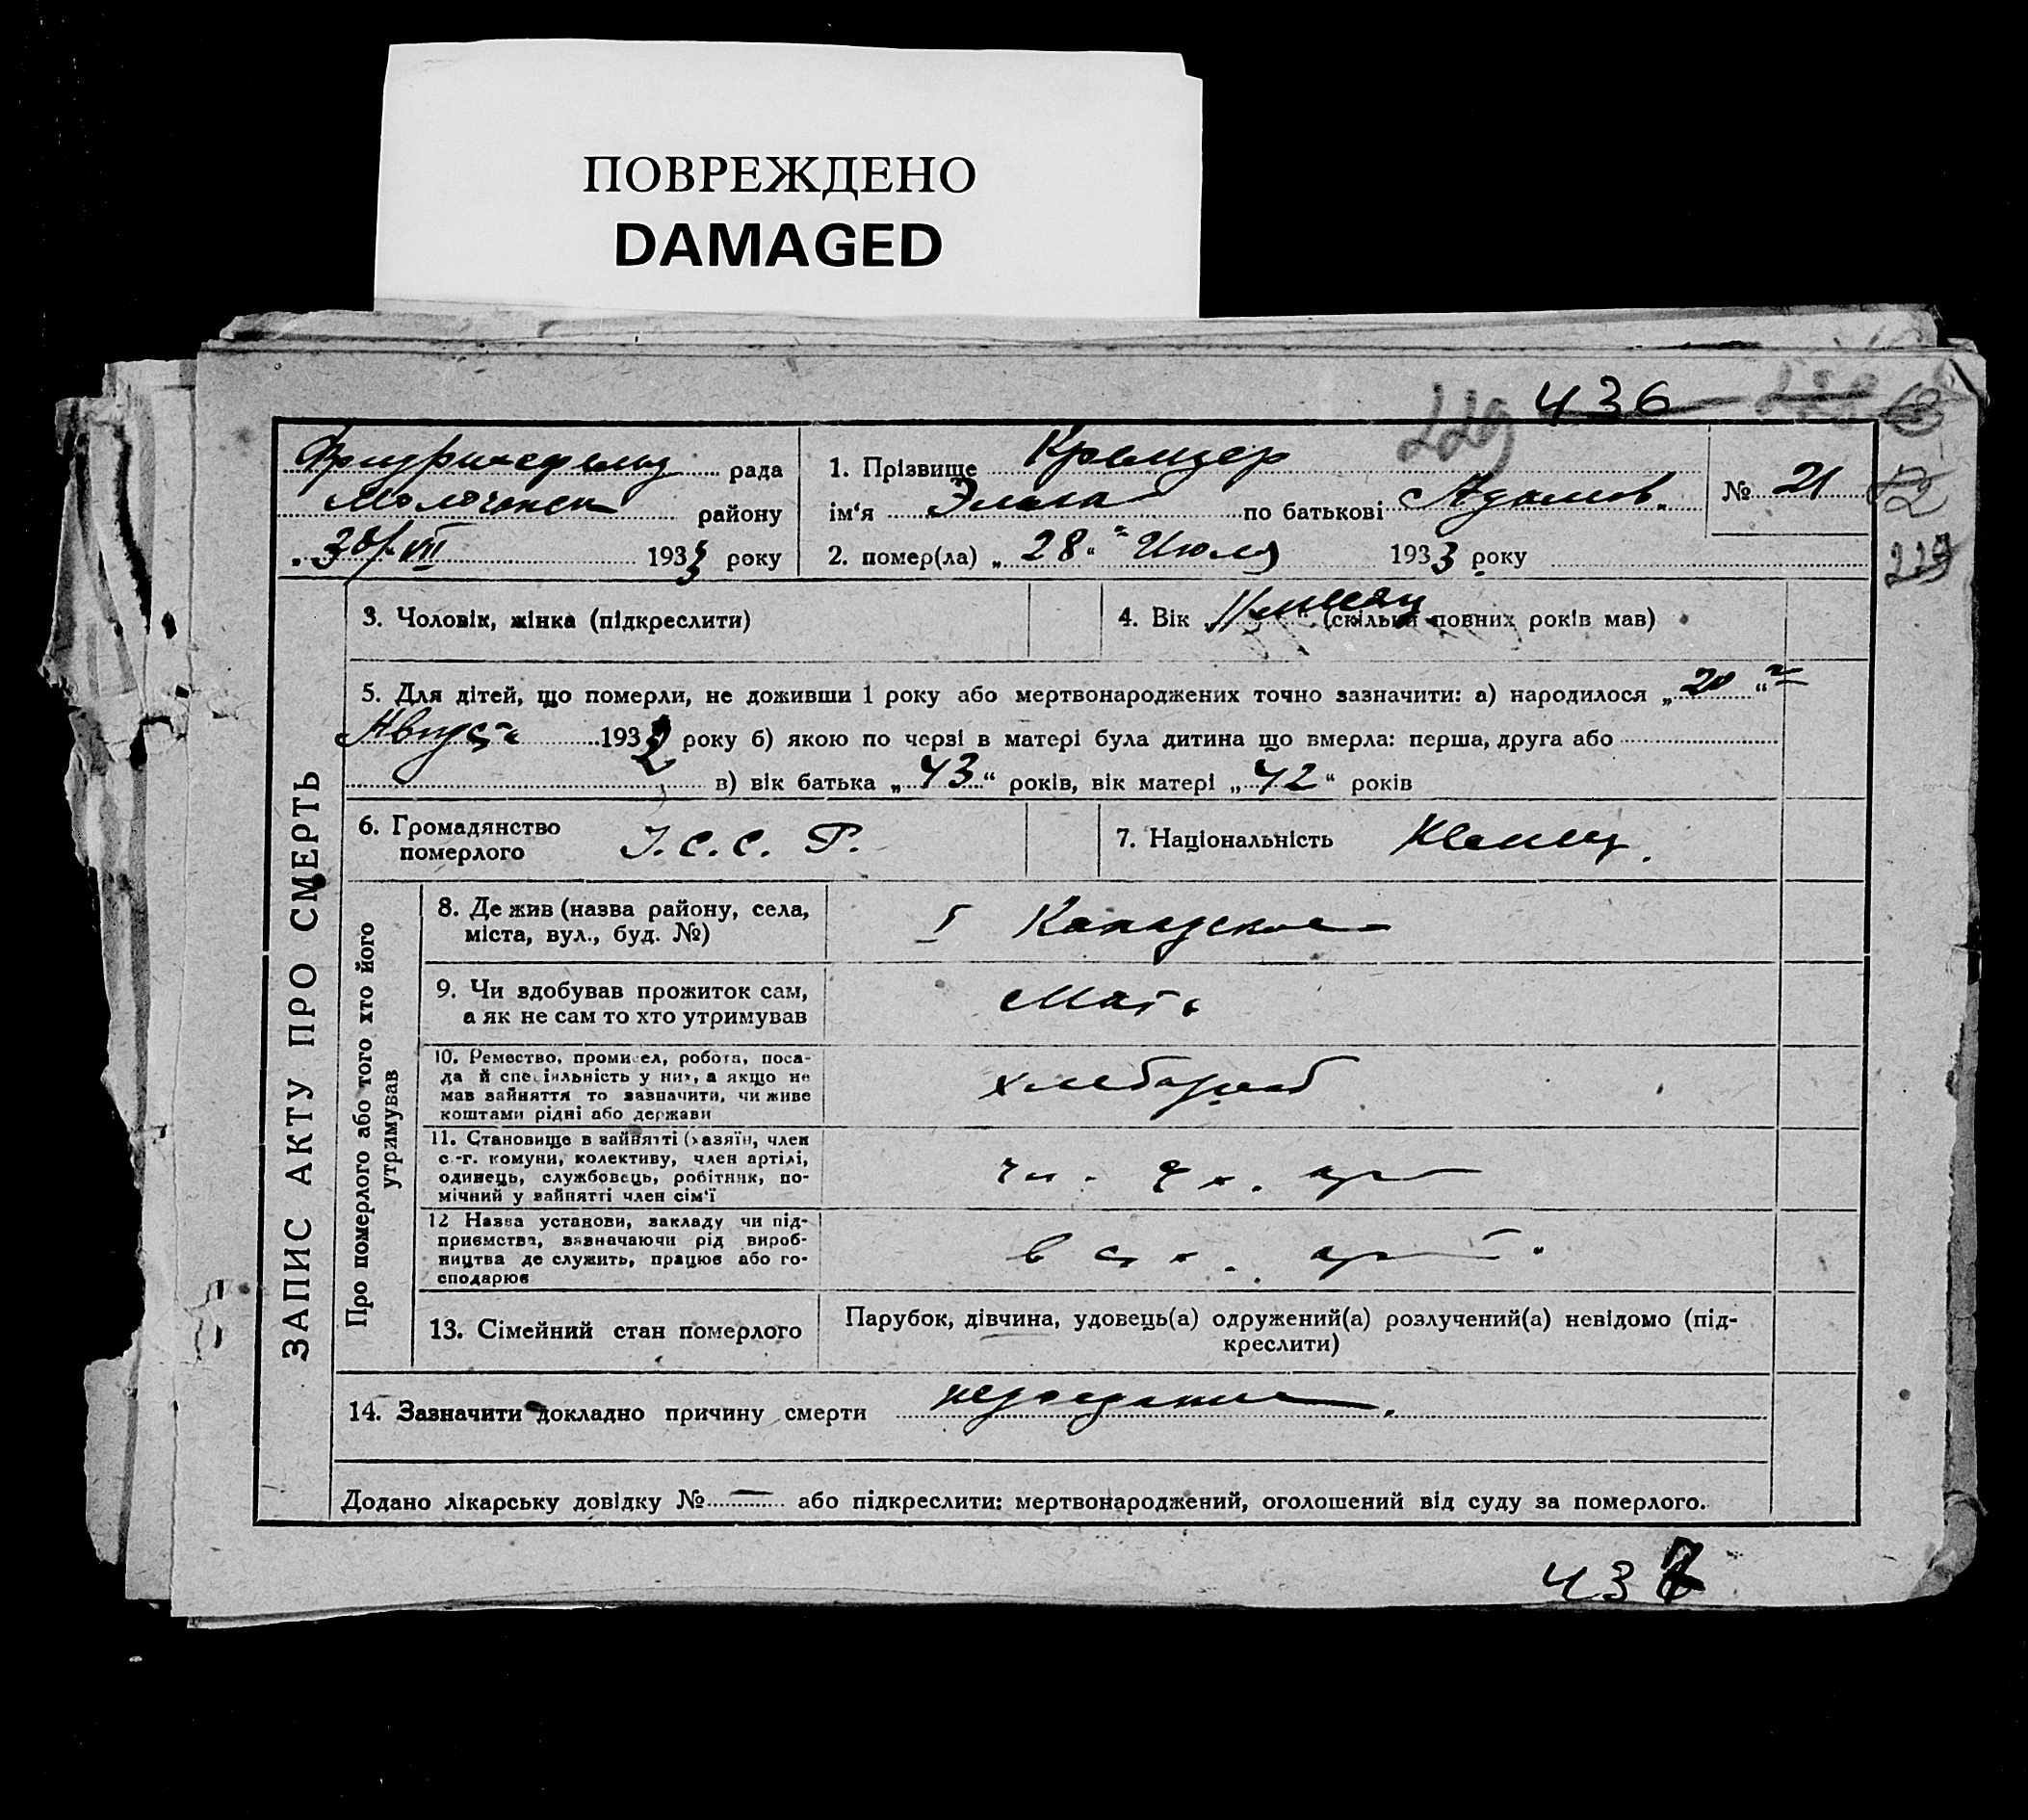 ПОВРЕЖДЕНО
DAMAGED
436
229
рада
району
30/VII 1933 року
1. Прізвище
ім‘я Элла по батькові Адамов.
2. помер(ла) „28“ Июля 1933 року
№ 21
229
ЗАПИС АКТУ ПРО СМЕРТЬ
3. Чоловік, жінка (підкреслити)
4. Вік 11 месяц (скільки повних років мав)
5. Для дітей, що померли, не доживши 1 року або мертвонароджених точно зазначити: а) народилося „20“
Август 1932 року б) якою по черзі в матері була дитина що вмерла: перша, друга або
в) вік батька „43“ років, вік матері „42“ років
6. Громадянство
померлого
С. С. Р.
7. Національність Немец.
Про померлого або того хто його
утримував
8. Де жив (назва району, села,
міста, вул., буд. №)
9. Чи здобував прожиток сам,
а як не сам то хто утримував
Мать
10. Ремество, промисел, робота, поса-
да й спеціяльність у них, а якщо не
мав зайняття то зазначити, чи живе
коштами рідні або держави
хлебороб
11. Становище в зайнятті (хазяїн, член
с.-г. комуни, колективу, член артілі,
одинець, службовець, робітник, по-
мічний у зайнятті член сім‘ї
чл. с х. арт
12 Назва установи, закладу чи під-
приємства, зазначаючи рід вироб-
ництва де служить, працює або го-
сподарює
в с х. арт.
13. Сімейний стан померлого
Парубок, дівчина, удовець(а) одружений(а) розлучений(а) невідомо (під-
креслити)
14. Зазначити докладно причину смерти недоедание.
Додано лікарську довідку № — або підкреслити: мертвонароджений, оголошений від суду за померлого.
437